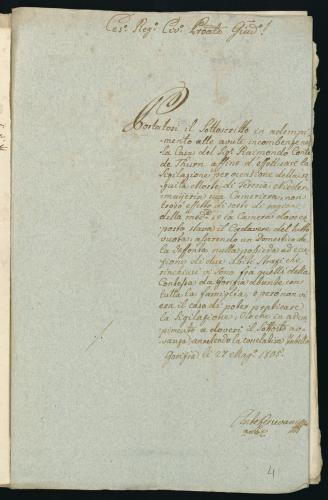 Ces.º Reg.º Civ.º Proato Giud.º!
Portatosi il Sottoscritto in adempi-
mento alle avute incombenze nel-
la Casa del Sig.r Raimondo Conte
de Thurn affine d'effettuare la
Sigilazione per occasione della se-
guita Morte di Teresia
sua Cameriera, non
trovò effetto di sorte di ragione
della med.ma e la Camera dove es-
posto stava il Cadavere del tutto
vuota, asserendo un domestico de
la defonta nulla possedea ad ec-
cezione di due abiti Strazi che
rinchiusi vi sono fra quelli della
Contessa da Gorizia absente con
tutta la famiglia, e però non vi
era il caso di poter praticare
la Sigilazione, Ilché in adem-
pimento a doveri il Sottoto
avanza annetendo la correlativa
Gorizia li 27 Mag.º 1805.
4